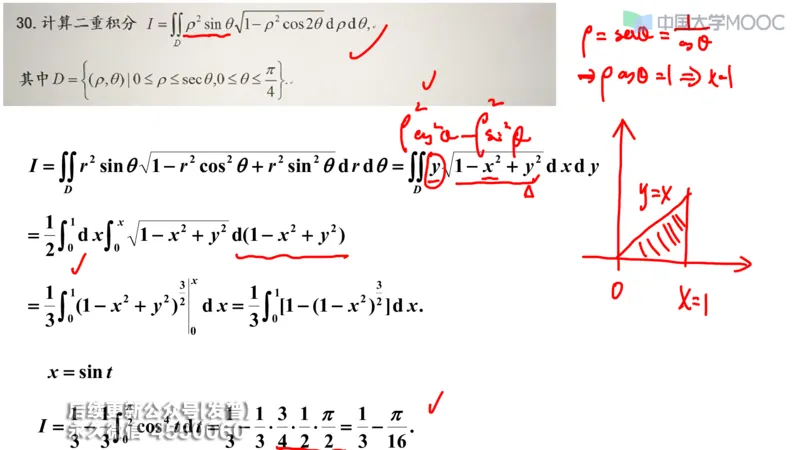 中国大学MOOC
30. 计算二重积分 I = ∬_D ρ² sin θ √(1 − ρ² cos 2θ) dρ dθ,
其中 D = {(ρ,θ) | 0 ≤ ρ ≤ sec θ, 0 ≤ θ ≤ π/4}.
ρ = secθ = 1/cosθ
→ ρ cosθ = 1 ⇒ x=1
ρ² cos²θ − ρ² sin²θ
I = ∬_D r² sin θ √(1 − r² cos² θ + r² sin² θ) d r d θ = ∬_D y √(1 − x² + y²) d x d y
y=x
= 1/2 ∫₀¹ d x ∫₀ˣ √(1 − x² + y²) d(1 − x² + y²)
0
x=1
= 1/3 ∫₀¹ (1 − x² + y²)^(3/2) |₀ˣ d x = 1/3 ∫₀¹ [1 − (1 − x²)^(3/2)] d x.
x = sin t
I = 1/3 − 1/3 ∫₀^(π/2) cos⁴ t d t = 1/3 − 1/3 · 3/4 · 1/2 · π/2 = 1/3 − π/16.